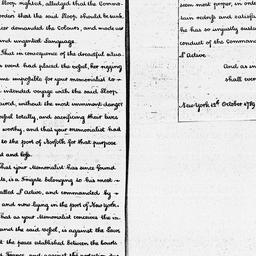 Sloop sighted, alledged that the Comma-
orders that the said Sloop, should be sunk
icer demanded the Colours, and made use
and ungenteel Language.
That in consequence of the dreadful situa-
s event had placed the vessel, her rigging
ame impossible for your memorialist to
s intended voyage with the said Sloop
ured, without the most imminent danger
vessel totally, and sacrificing their lives
worthy, and that your memorialist had
to the port of Norfolk for that purpose
and loss.
That your Memorialist has since found
te, is a Frigate belonging to his most
called L'Active, and commanded by
and now lying in the port of New York.
That as your Memorialist conceives the in-
and the said Vessel, is against the Laws
t the peace established between the Courts
d France, and against the protection due
seem most proper, in orde
tain redress and satisfac
he has so unjustly sustai
conduct of the Comman
L'Active
And as in
shall ever
New York 12th October 1789